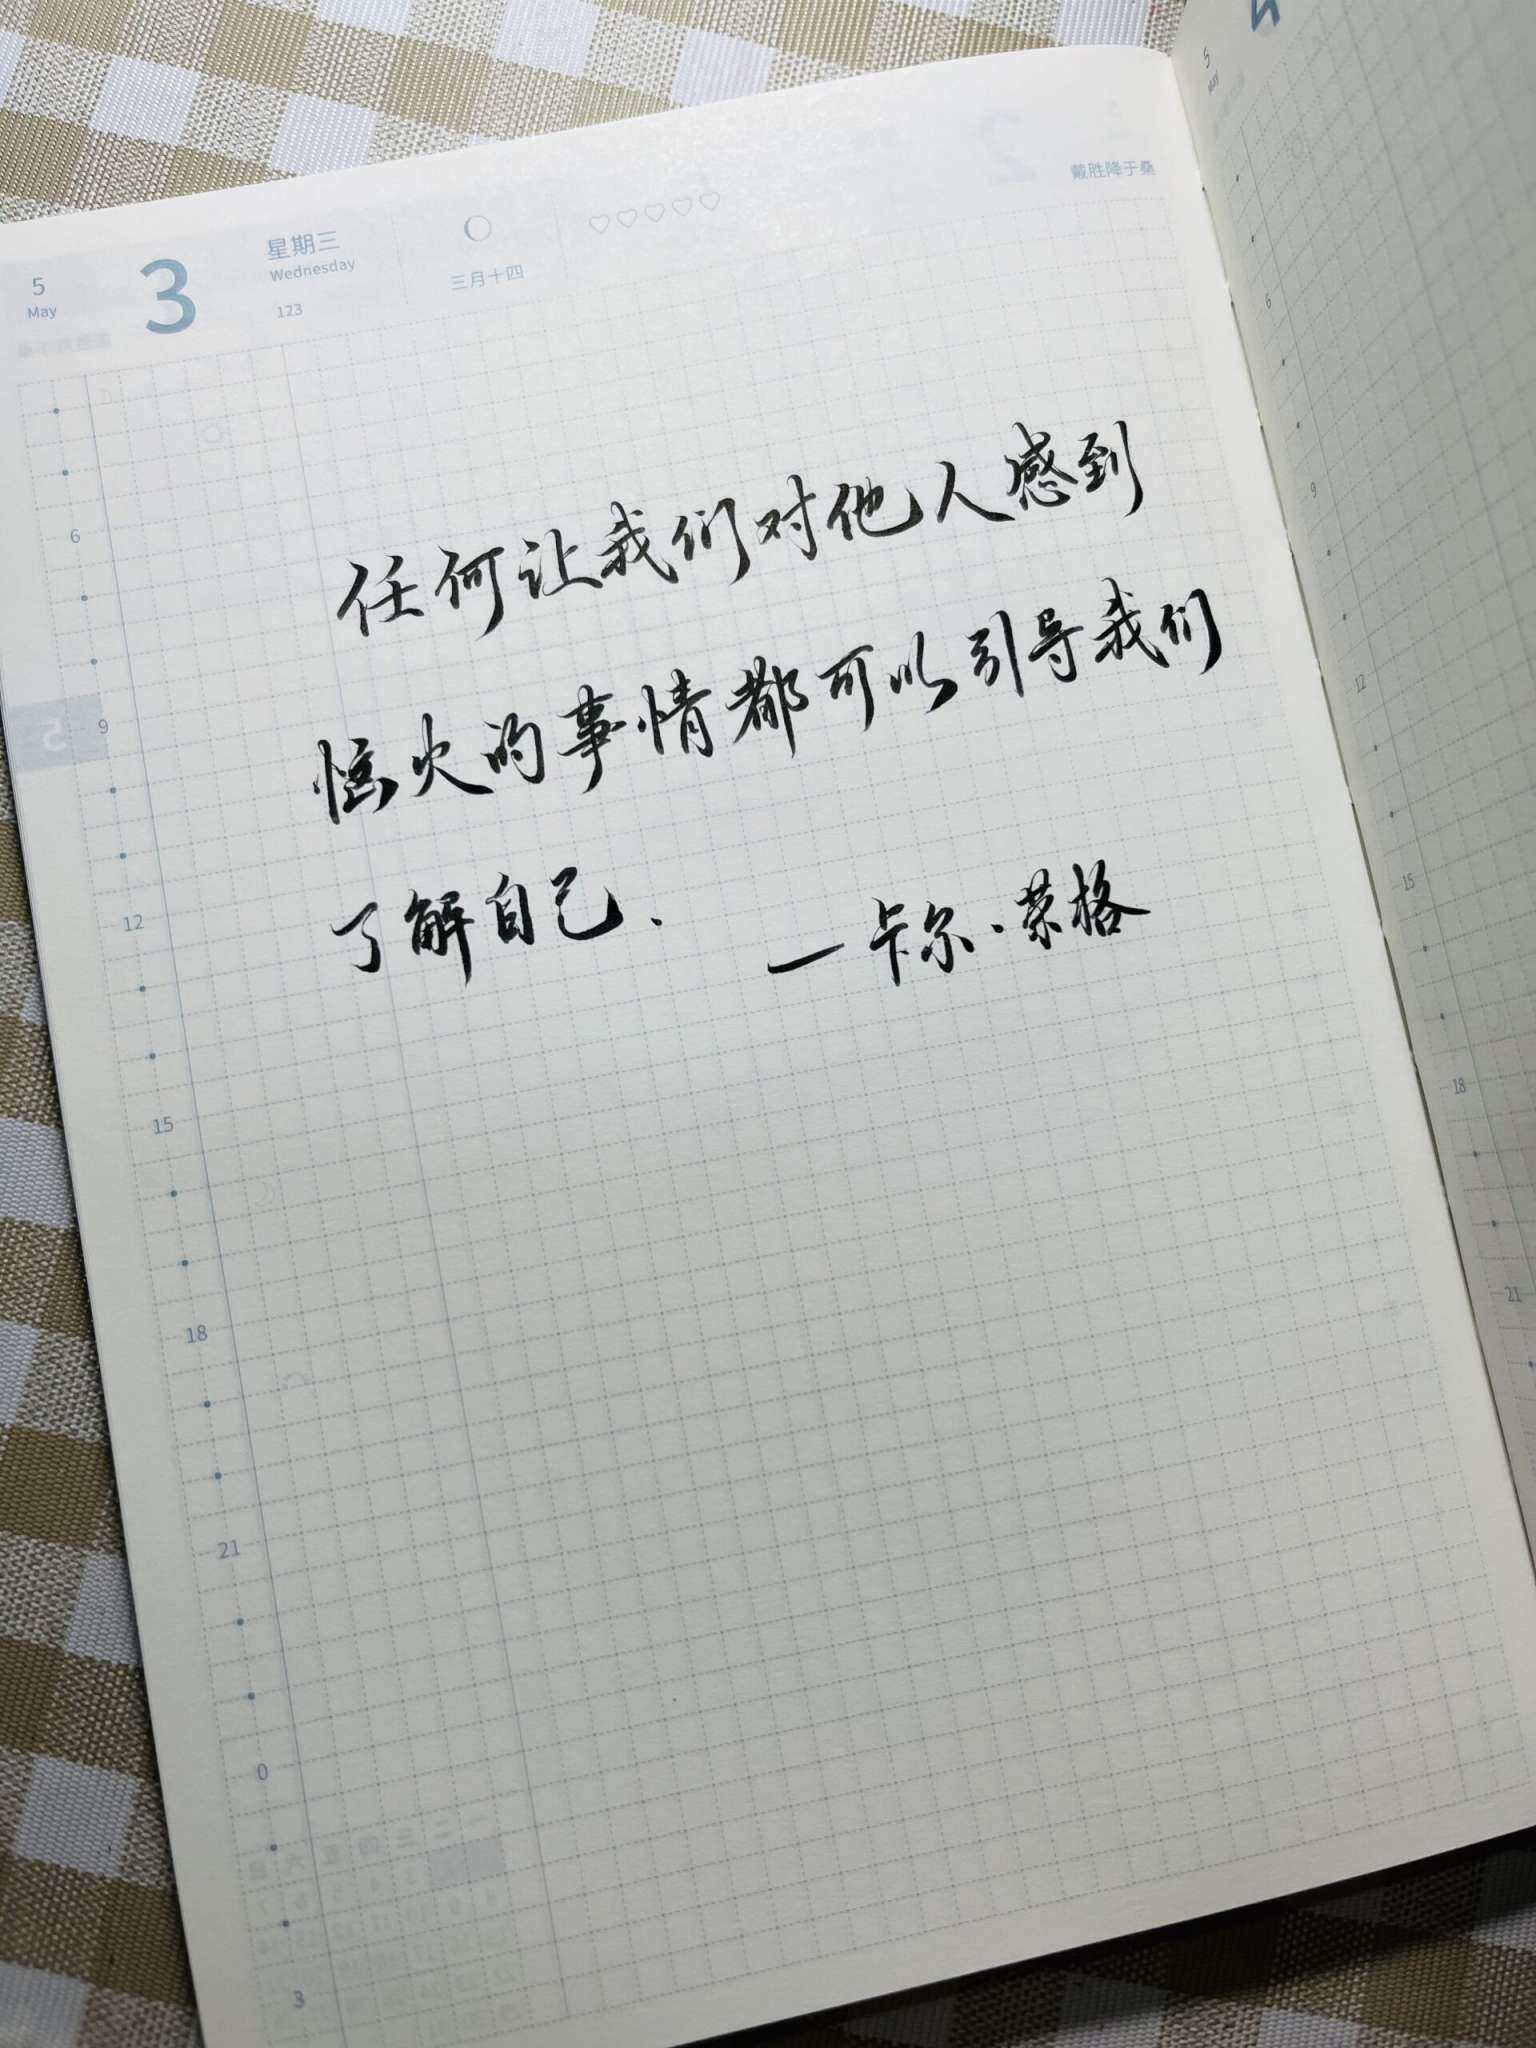 戴胜降于桑
5
May
3
星期三
Wednesday
123
三月十四
任何让我们对他人感到
恼火的事情都可以引导我们
了解自己.
—卡尔·荣格
6
9
12
15
18
21
0
3
5
May
6
9
12
15
18
21